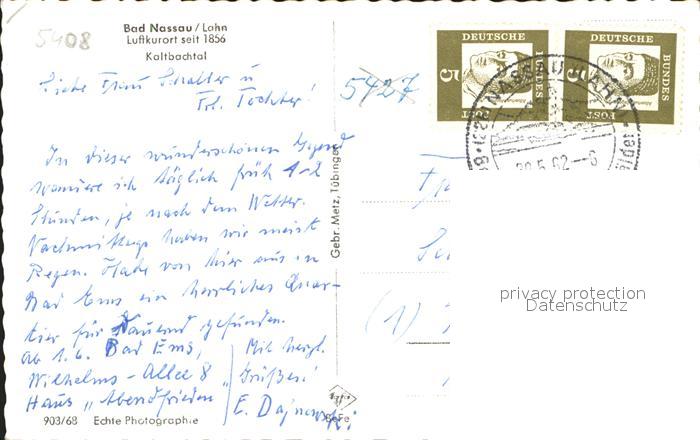 5408
Bad Nassau / Lahn
Luftkurort seit 1856
Kaltbachtal
Liebe Frau Schalter u
Frl. Tochter!
In dieser wunderschönen Gegend
wandere ich täglich früh 1-2
Stunden, je nach dem Wetter.
Nachmittags haben wir meist
Regen. Habe von hier aus in
Bad Ems ein herrliches Quar-
tier für Dauernd gefunden.
Ab 1.6. Bad Ems,
Wilhelms-Allee 8
Haus "Abendfrieden"
Mit herzl.
Grüßen!
E.
903/68 Echte Photographie
Gebr. Metz, Tübingen
BeFe
5427
DEUTSCHE
BUNDES
POST
5
DEUTSCHE
BUNDES
POST
5
NASSAU (LAHN)
30.5.62
(1)
privacy protection
Datenschutz